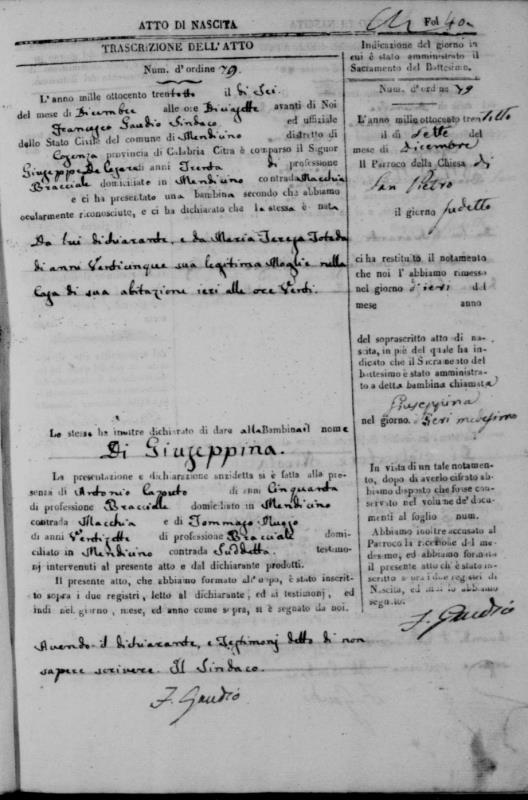 ATTO DI NASCITA
Fol 40.
TRASCRIZIONE DELL'ATTO
Num. d'ordine 79.
L'anno mille ottocento trentotto il dì Sei
del mese di Dicembre alle ore Diciasette avanti di Noi
Francesco Gaudio Sindaco ed uffiziale
dello Stato Civile del comune di Mendicino distretto di
Cosenza provincia di Calabria Citra è comparso il Signor
Giuseppe De Cesare di anni Trenta di professione
Bracciale domiciliato in Mendicino contrada Macchia
e ci ha presentato una bambina secondo che abbiamo
ocularmente riconosciuto, e ci ha dichiarato che la stessa è nata
Da lui dichiarante, e da Maria Teresa Toteda
di anni Venticinque sua legitima Moglie nella
Casa di sua abitazione ieri alle ore Venti.
Lo stesso ha inoltre dichiarato di dare alla Bambina il nome
Di Giuseppina.
La presentazione e dichiarazione anzidetta si è fatta alla pre-
senza di Antonio Caputo di anni Cinquanta
di professione Bracciale domiciliato in Mendicino
contrada Macchia e di Tommaso
di anni Ventisette di professione Bracciale domi-
ciliato in Mendicino contrada Suddetta. testimo-
nj intervenuti al presente atto e dal dichiarante prodotti.
Il presente atto, che abbiamo formato all'uopo, è stato inscrit-
to sopra i due registri, letto al dichiarante, ed ai testimonj, ed
indi nel giorno, mese, ed anno come sopra, si è segnato da noi.
Avendo il dichiarante, e Testimonj detto di non
sapere scrivere. Il Sindaco
F. Gaudio
Indicazione del giorno in
cui è stato amministrato il
Sacramento del Battesimo.
Num. d'ordine 79
L'anno mille ottocento trentotto
il dì Sette del
mese di Dicembre
Il Parroco della Chiesa di
San Pietro
il giorno sudetto
ci ha restituito il notamento
che noi l'abbiamo rimesso
nel giorno d'ieri del
mese anno
del soprascritto atto di na-
scita, in piè del quale ha in-
dicato che il Sacramento del
battesimo è stato amministra-
to a detta bambina chiamata
Giuseppina
nel giorno d'Ieri medesimo
In vista di un tale notamen-
to, dopo di averlo cifrato ab-
biamo disposto che fosse con-
servato nel volume de' docu-
menti al foglio num.
Abbiamo inoltre accusato al
Parroco la ricezione del me-
desimo, ed abbiamo formato
il presente atto ch'è stato in-
scritto sopra i due registri di
Nascita, ed indi lo abbiamo
segnato.
F. Gaudio